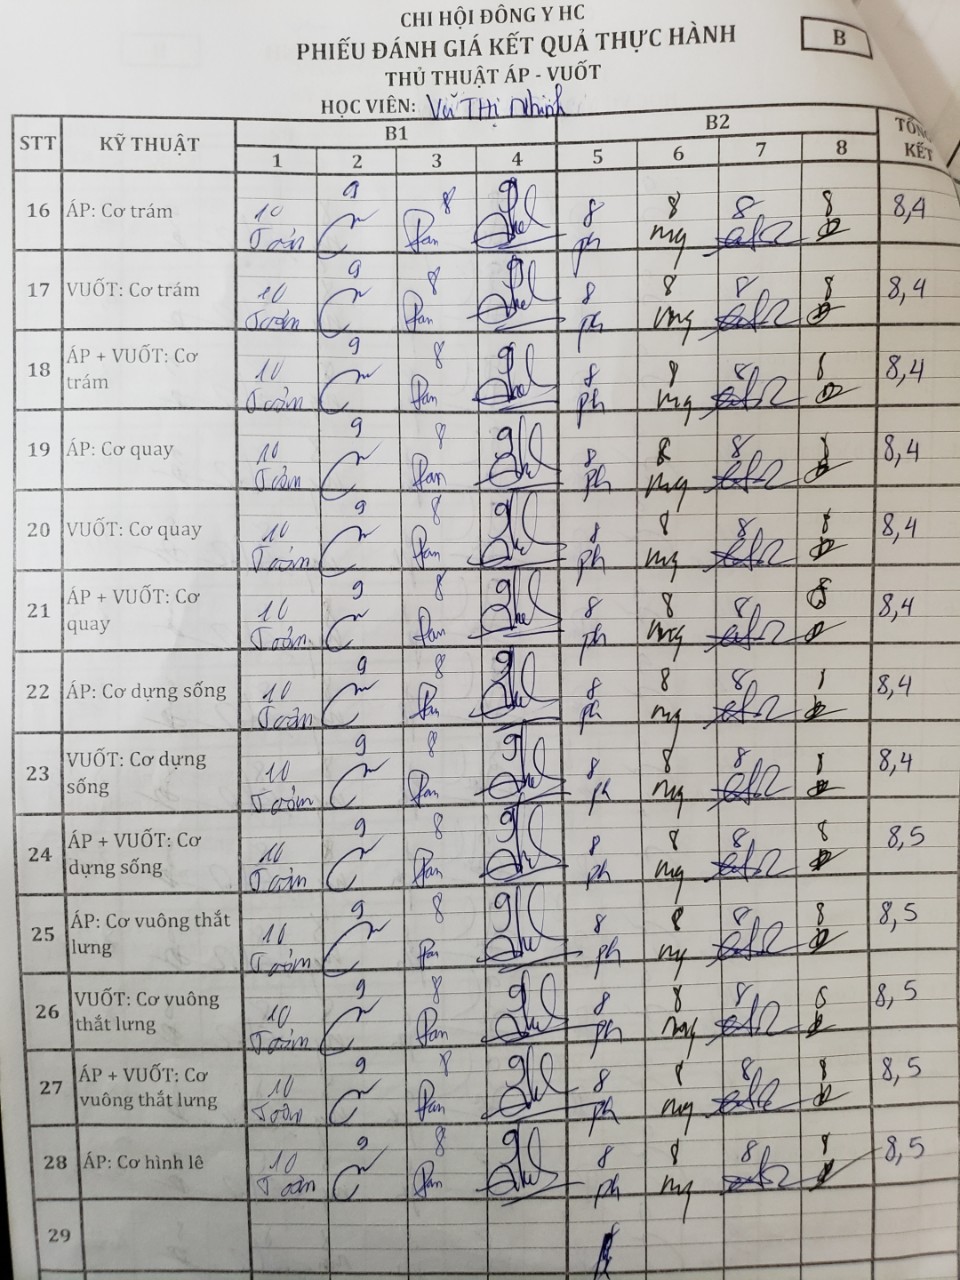 CHI HỘI ĐÔNG Y HC
PHIẾU ĐÁNH GIÁ KẾT QUẢ THỰC HÀNH
B
THỦ THUẬT ÁP - VUỐT
HỌC VIÊN: Vũ Thị Nhinh
STT KỸ THUẬT B1 B2 TỔNG KẾT
1 2 3 4 5 6 7 8
16 ÁP: Cơ trám 10 9 8 9 8 8 8 8 8,4
Toản Pan ph mg
17 VUỐT: Cơ trám 10 9 8 9 8 8 8 8 8,4
Toản Pan ph mg
18 ÁP + VUỐT: Cơ trám 10 9 8 9 8 8 8 8 8,4
Toản Pan ph mg
19 ÁP: Cơ quay 10 9 8 9 8 8 8 8,4
Toản Pan ph mg
20 VUỐT: Cơ quay 10 9 8 9 8 8 8 8 8,4
Toản Pan ph mg
21 ÁP + VUỐT: Cơ quay 10 9 8 9 8 8 8 8 8,4
Toản Pan ph mg
22 ÁP: Cơ dựng sống 10 9 8 9 8 8 8 8,4
Toản Pan ph mg
23 VUỐT: Cơ dựng sống 10 9 8 9 8 8 8 8 8,4
Toản Pan ph mg
24 ÁP + VUỐT: Cơ dựng sống 10 9 8 9 8 8 8 8 8,5
Toản Pan ph mg
25 ÁP: Cơ vuông thắt lưng 10 9 8 9 8 8 8 8 8,5
Toản Pan ph mg
26 VUỐT: Cơ vuông thắt lưng 10 9 8 9 8 8 8 8 8,5
Toản Pan ph mg
27 ÁP + VUỐT: Cơ vuông thắt lưng 10 9 8 9 8 8 8 8 8,5
Toản Pan ph mg
28 ÁP: Cơ hình lê 10 9 8 9 8 8 8 8 8,5
Toản Pan ph mg
29